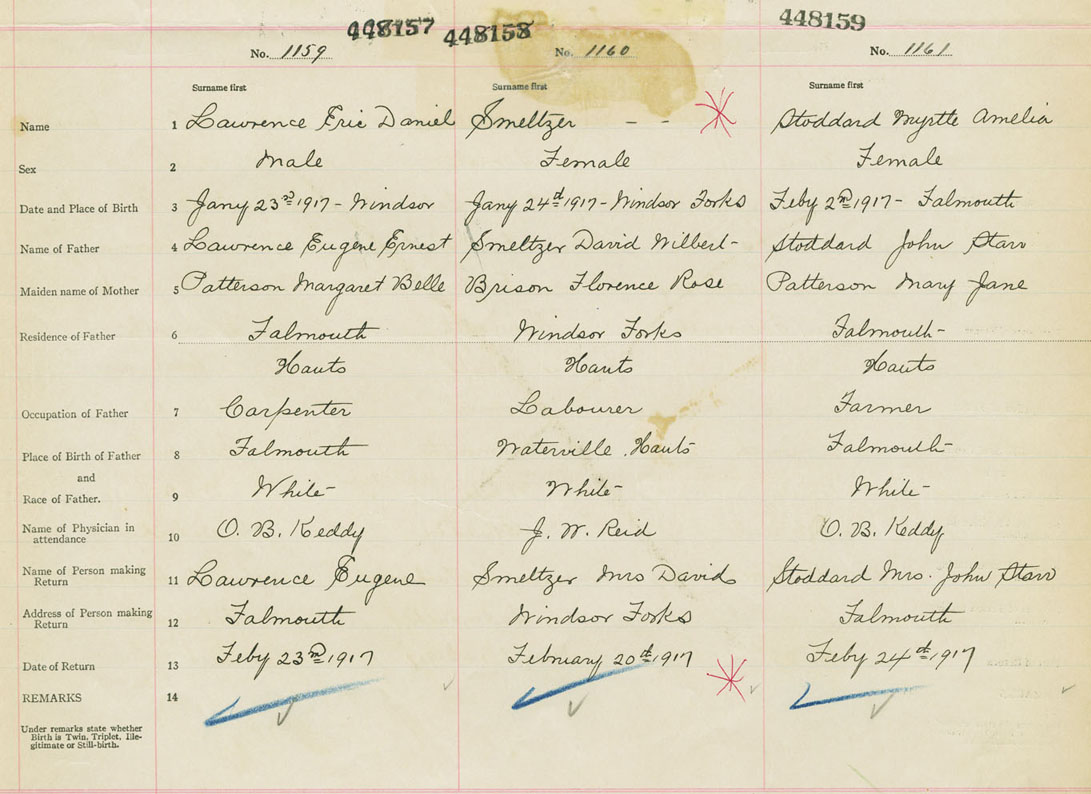 448157 448158 448159
No. 1159 No. 1160 No. 1161
Surname first Surname first Surname first
Name 1 Lawrence Eric Daniel Smeltzer - - Stoddard Myrtle Amelia
Sex 2 Male Female Female
Date and Place of Birth 3 Jany 23rd 1917 - Windsor Jany 24th 1917 - Windsor Forks Feby 2nd 1917 - Falmouth
Name of Father 4 Lawrence Eugene Ernest Smeltzer David Wilbert Stoddard John Starr
Maiden name of Mother 5 Patterson Margaret Belle Brison Florence Rose Patterson Mary Jane
Residence of Father 6 Falmouth Windsor Forks Falmouth
Hants Hants Hants
Occupation of Father 7 Carpenter Labourer Farmer
Place of Birth of Father 8 Falmouth Waterville Hants Falmouth
and
Race of Father. 9 White White White
Name of Physician in
attendance 10 O. B. Keddy J. W. Reid O. B. Keddy
Name of Person making
Return 11 Lawrence Eugene Smeltzer Mrs David Stoddard Mrs. John Starr
Address of Person making
Return 12 Falmouth Windsor Forks Falmouth
Date of Return 13 Feby 23rd 1917 February 20th 1917 Feby 24th 1917
REMARKS 14
Under remarks state whether
Birth is Twin, Triplet, Ille-
gitimate or Still-birth.